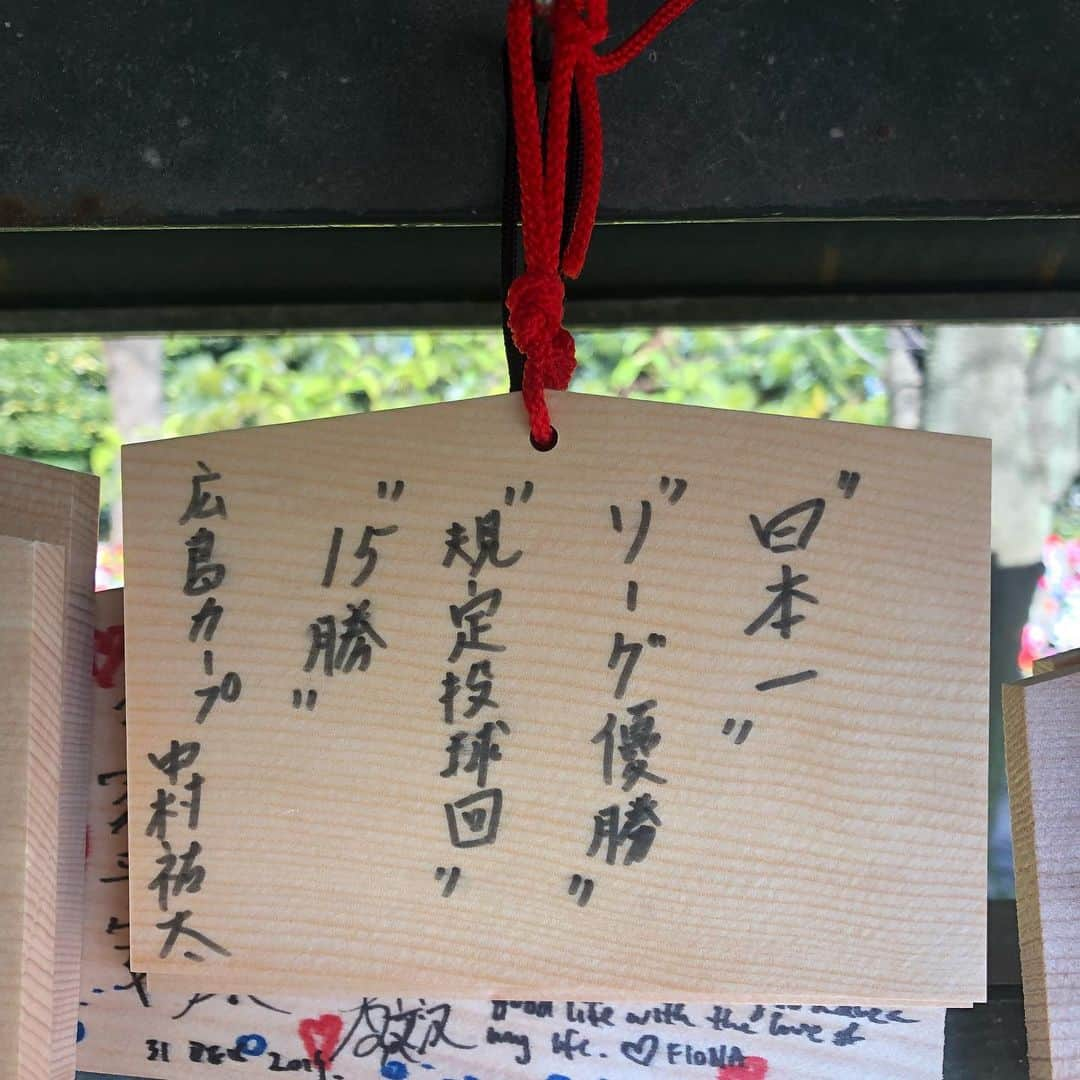 "日本一"
"リーグ優勝"
"規定投球回"
"15勝"
広島カープ 中村祐太
good life with the love of
my life. ♡ FIONA
31 DEC 2019.